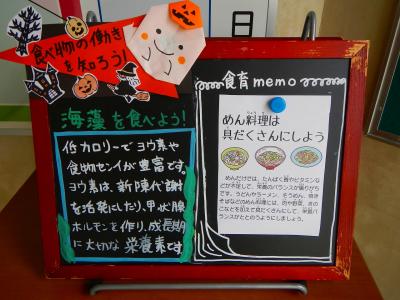 食べ物の働き
を知ろう!
海藻を食べよう!
低カロリーでヨウ素や
食物センイが豊富です。
ヨウ素は、新陳代謝
を活発にしたり、甲状腺
ホルモンを作り、成長期
に大切な栄養素です
食育memo
めん料理は
具だくさんにしよう
めんだけでは、たんぱく質やビタミンな
どが不足して、栄養のバランスが偏りがち
です。うどんやラーメン、そうめん、焼き
そばなどのめん料理には、肉や野菜、きの
こなどを加えて具だくさんにして、栄養バ
ランスがととのうようにしましょう。
日